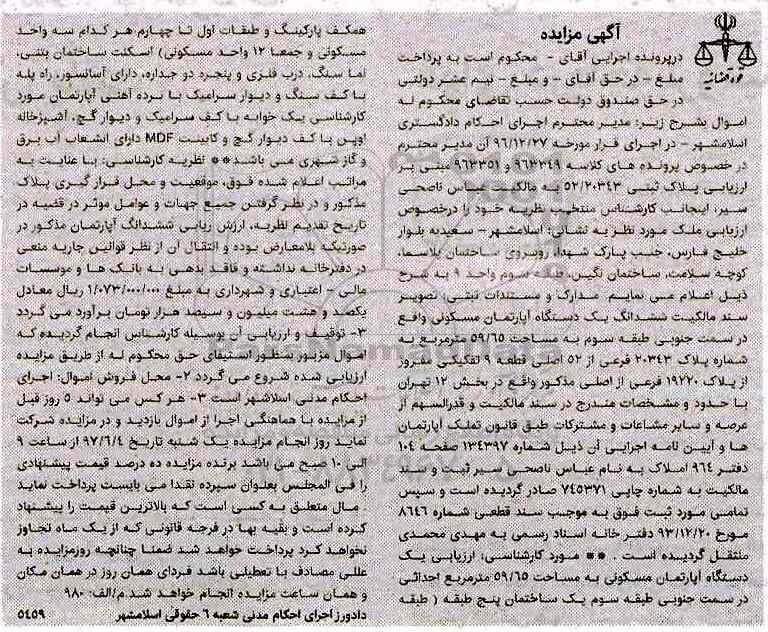 آگهی مزایده
قوه قضائیه
درپرونده اجرایی آقای - محکوم است به پرداخت
مبلغ - در حق آقای - و مبلغ - نیم عشر دولتی
در حق صندوق دولت حسب تقاضای محکوم له
اموال بشرح زیر: مدیر محترم اجرای احکام دادگستری
اسلامشهر - در اجرای قرار مورخه ۹۶/۱۲/۲۷ آن مدیر محترم
در خصوص پرونده های کلاسه ۹۶۳۳۴۹ و ۹۶۳۳۵۱ مبنی بر
ارزیابی پلاک ثبتی ۵۲/۲۰۳۴۳ به مالکیت عباس ناصحی
سیر، اینجانب کارشناس منتخب نظریه خود را درخصوص
ارزیابی ملک مورد نظر به نشانی: اسلامشهر - سعیدیه بلوار
خلیج فارس، جنب پارک شهدا، روبروی ساختمان پلاسما،
کوچه سلامت، ساختمان نگین، طبقه سوم واحد ۹ به شرح
ذیل اعلام می نمایم. مدارک و مستندات ثبتی: تصویر
سند مالکیت ششدانگ یک دستگاه آپارتمان مسکونی واقع
در سمت جنوبی طبقه سوم به مساحت ۵۹/۶۵ مترمربع به
شماره پلاک ۲۰۳۴۳ فرعی از ۵۲ اصلی قطعه ۹ تفکیکی مفروز
از پلاک ۱۹۲۲۰ فرعی از اصلی مذکور واقع در بخش ۱۲ تهران
با حدود و مشخصات مندرج در سند مالکیت و قدرالسهم از
عرصه و سایر مشاعات و مشترکات طبق قانون تملک آپارتمان
ها و آیین نامه اجرایی آن ذیل شماره ۱۳۴۳۹۷ صفحه ۱۰۴
دفتر ۹۶۴ املاک به نام عباس ناصحی سیر ثبت و سند
مالکیت به شماره چاپی ۷۴۵۳۷۱ صادر گردیده است و سپس
تمامی مورد ثبت فوق به موجب سند قطعی شماره ۸۶۴۶
مورخ ۹۳/۱۲/۲۰ دفتر خانه اسناد رسمی به مهدی محمدی
منتقل گردیده است . ** مورد کارشناسی: ارزیابی یک
دستگاه آپارتمان مسکونی به مساحت ۵۹/۶۵ مترمربع احداثی
در سمت جنوبی طبقه سوم یک ساختمان پنج طبقه ( طبقه
همکف پارکینگ و طبقات اول تا چهارم هر کدام سه واحد
مسکونی و جمعا ۱۲ واحد مسکونی) اسکلت ساختمان بتنی،
نما سنگ، درب فلزی و پنجره دو جداره، دارای آسانسور، راه پله
با کف سنگ و دیوار سرامیک با نرده آهنی آپارتمان مورد
کارشناسی یک خوابه با کف سرامیک و دیوار گچ، آشپزخانه
اوپن با کف دیوار گچ و کابینت MDF دارای انشعاب آب برق
و گاز شهری می باشد** نظریه کارشناسی: با عنایت به
مراتب اعلام شده فوق، موقعیت و محل قرار گیری پلاک
مذکور و در نظر گرفتن جمیع جهات و عوامل موثر در قضیه در
تاریخ تقدیم نظریه، ارزش ریابی ششدانگ آپارتمان مذکور در
صورتیکه بلامعارض بوده و انتقال آن از نظر قوانین جاریه منعی
در دفترخانه نداشته و فاقد بدهی به بانک ها و موسسات
مالی - اعتباری و شهرداری به مبلغ ۱/۰۷۳/۰۰۰/۰۰۰ ریال معادل
یکصد و هشت میلیون و سیصد هزار تومان برآورد می گردد
۳- توقیف و ارزیابی آن بوسیله کارشناس انجام گردیده که
اموال مزبور بمنظور استیفای حق محکوم له از طریق مزایده
ارزیابی شده شروع می گردد ۲- محل فروش اموال: اجرای
احکام مدنی اسلامشهر است ۳- هر کس می تواند ۵ روز قبل
از مزایده با هماهنگی اجرا از اموال بازدید و در مزایده شرکت
نماید روز انجام مزایده یک شنبه تاریخ ۹۷/۶/۴ از ساعت ۹
الی ۱۰ صبح می باشد برنده مزایده ده درصد قیمت پیشنهادی
را فی المجلس بعنوان سپرده نقدا می بایست پرداخت نماید
. مال متعلق به کسی است که بالاترین قیمت را پیشنهاد
کرده است و بقیه بها در فرجه قانونی که از یک ماه تجاوز
نخواهد کرد پرداخت خواهد شد ضمنا چنانچه روزمزایده به
عللی مصادف با تعطیلی باشد فردای همان روز در همان مکان
و همان ساعت مزایده انجام خواهد شد.م/الف: ۹۸۰
دادورز اجرای احکام مدنی شعبه ۶ حقوقی اسلامشهر ۵۴۵۹